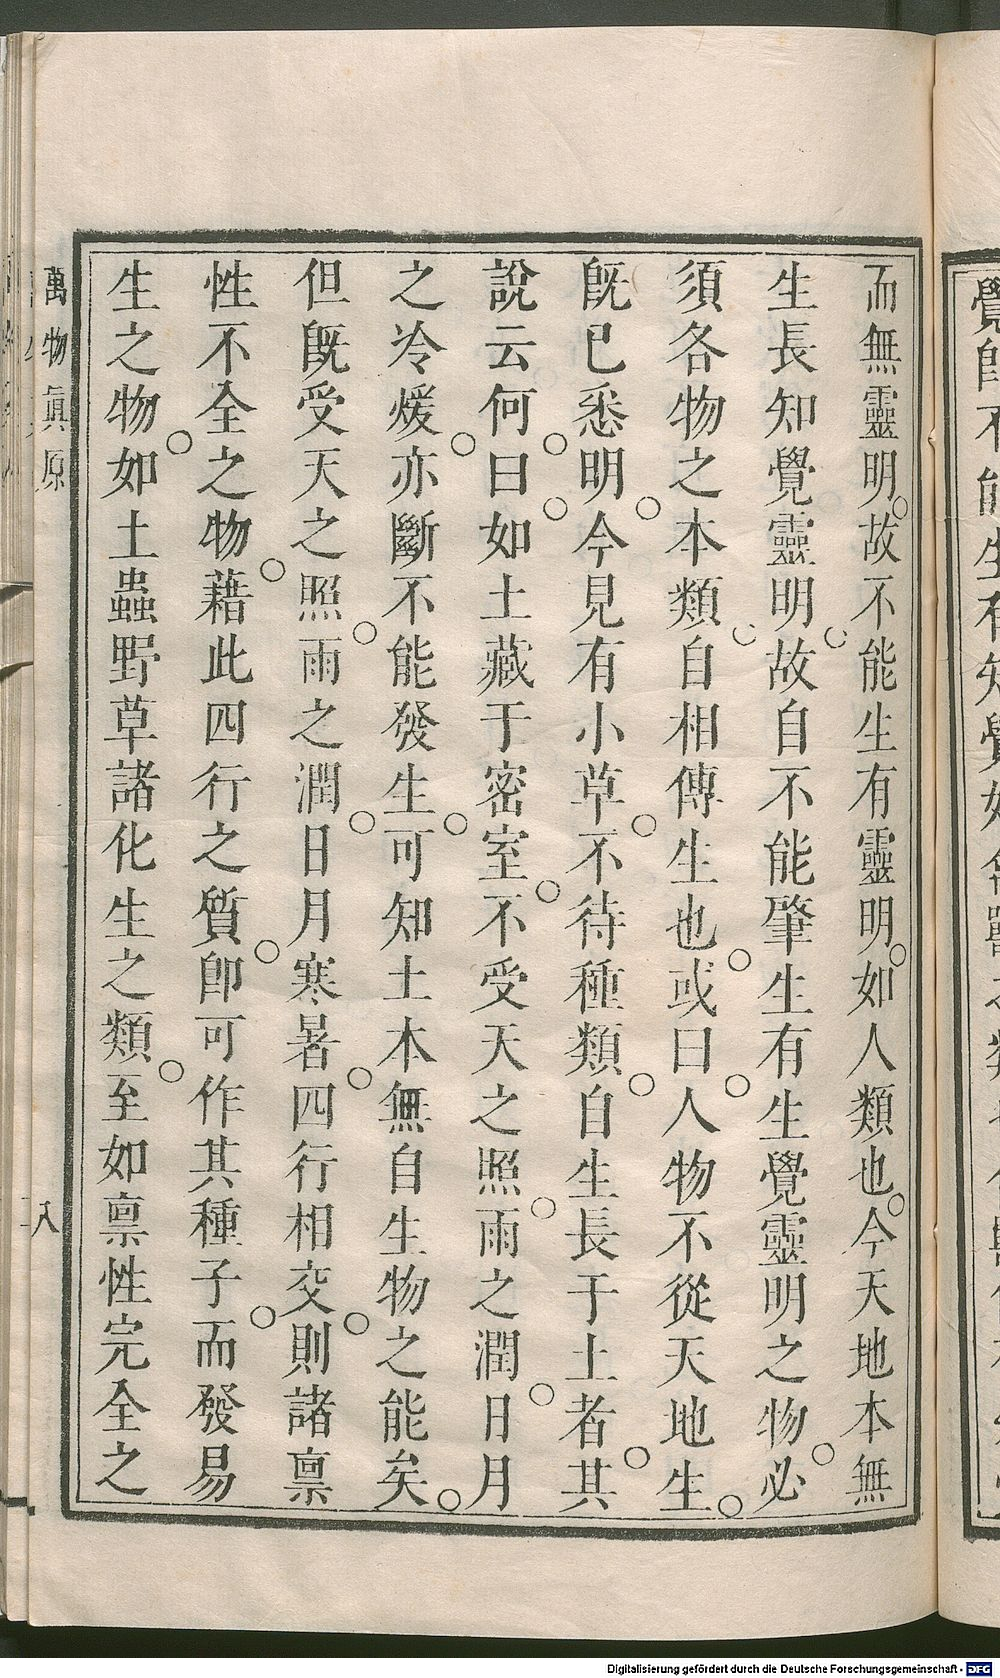 而無靈明。故不能生有靈明。如人類也。今天地本無
生長知覺靈明。故自不能肇生有生覺靈明之物。必
須各物之本類。自相傳生也。或曰。人物不從天地生。
旣已悉明。今見有小草。不待種類。自生長于土者。其
說云何。曰。如土藏于密室。不受天之照。雨之潤。日月
之冷煖。亦斷不能發生。可知土本無自生物之能矣。
但旣受天之照。雨之潤。日月寒暑。四行相交。則諸禀
性不全之物。藉此四行之質。卽可作其種子。而發易
生之物。如土蟲野草諸化生之類。至如禀性完全之
萬物眞原
八
Digitalisierung gefördert durch die Deutsche Forschungsgemeinschaft - DFG